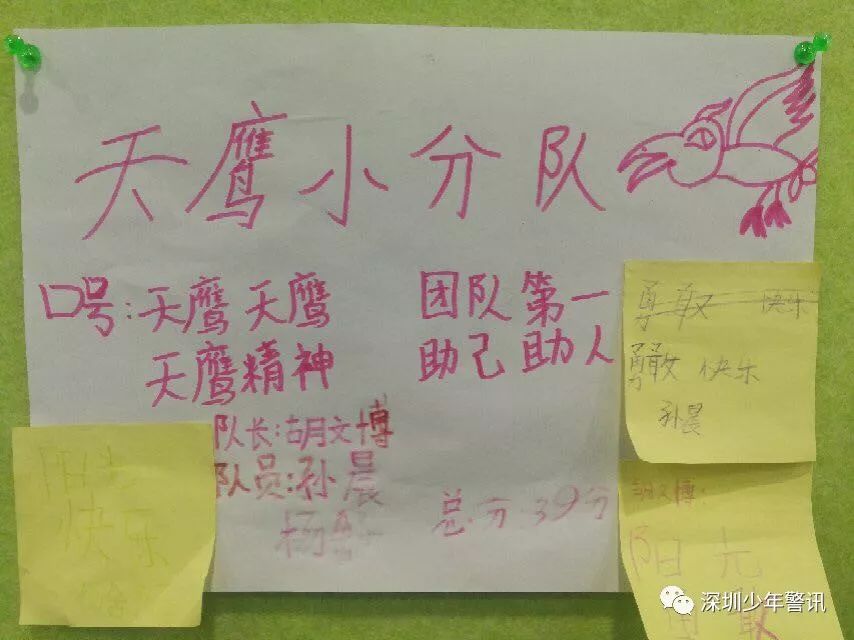 天鹰小分队
口号:天鹰天鹰 团队第一
天鹰精神 助己助人
队长:胡文博
队员:孙晨
杨
总分:39分
勇敢 快乐
勇敢 快乐
孙晨
阳光
快乐
胡文博:
阳光
勇敢
深圳少年警讯